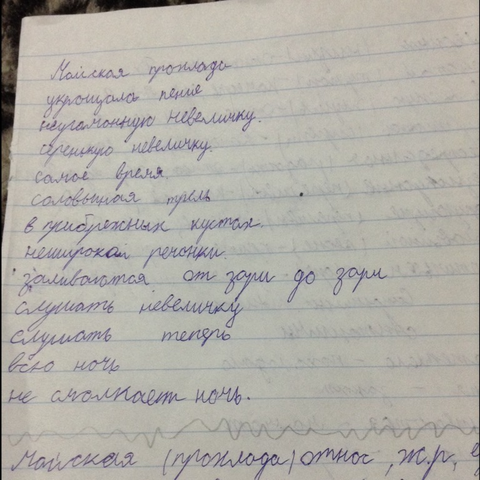 Майская прохлада
укрощала пение
неугомонную невеличку.
серенькую невеличку.
самое время,
соловьиная трель
в прибрежных кустах.
неширокой речонки.
заливаются от зари до зари
слушать невеличку
слушать теперь
всю ночь
не смолкает ночь.
Майская (прохлада) относ, ж.р,